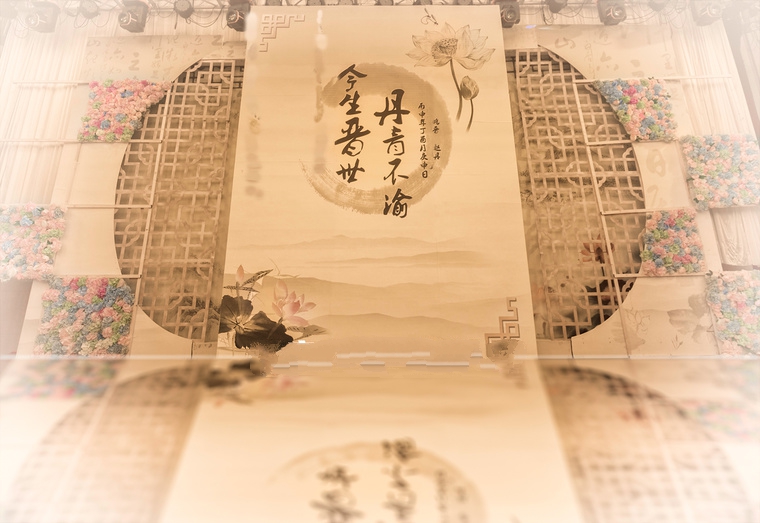 今生晋世
丹青不渝
赵丹
丙申年丁酉月庚申日